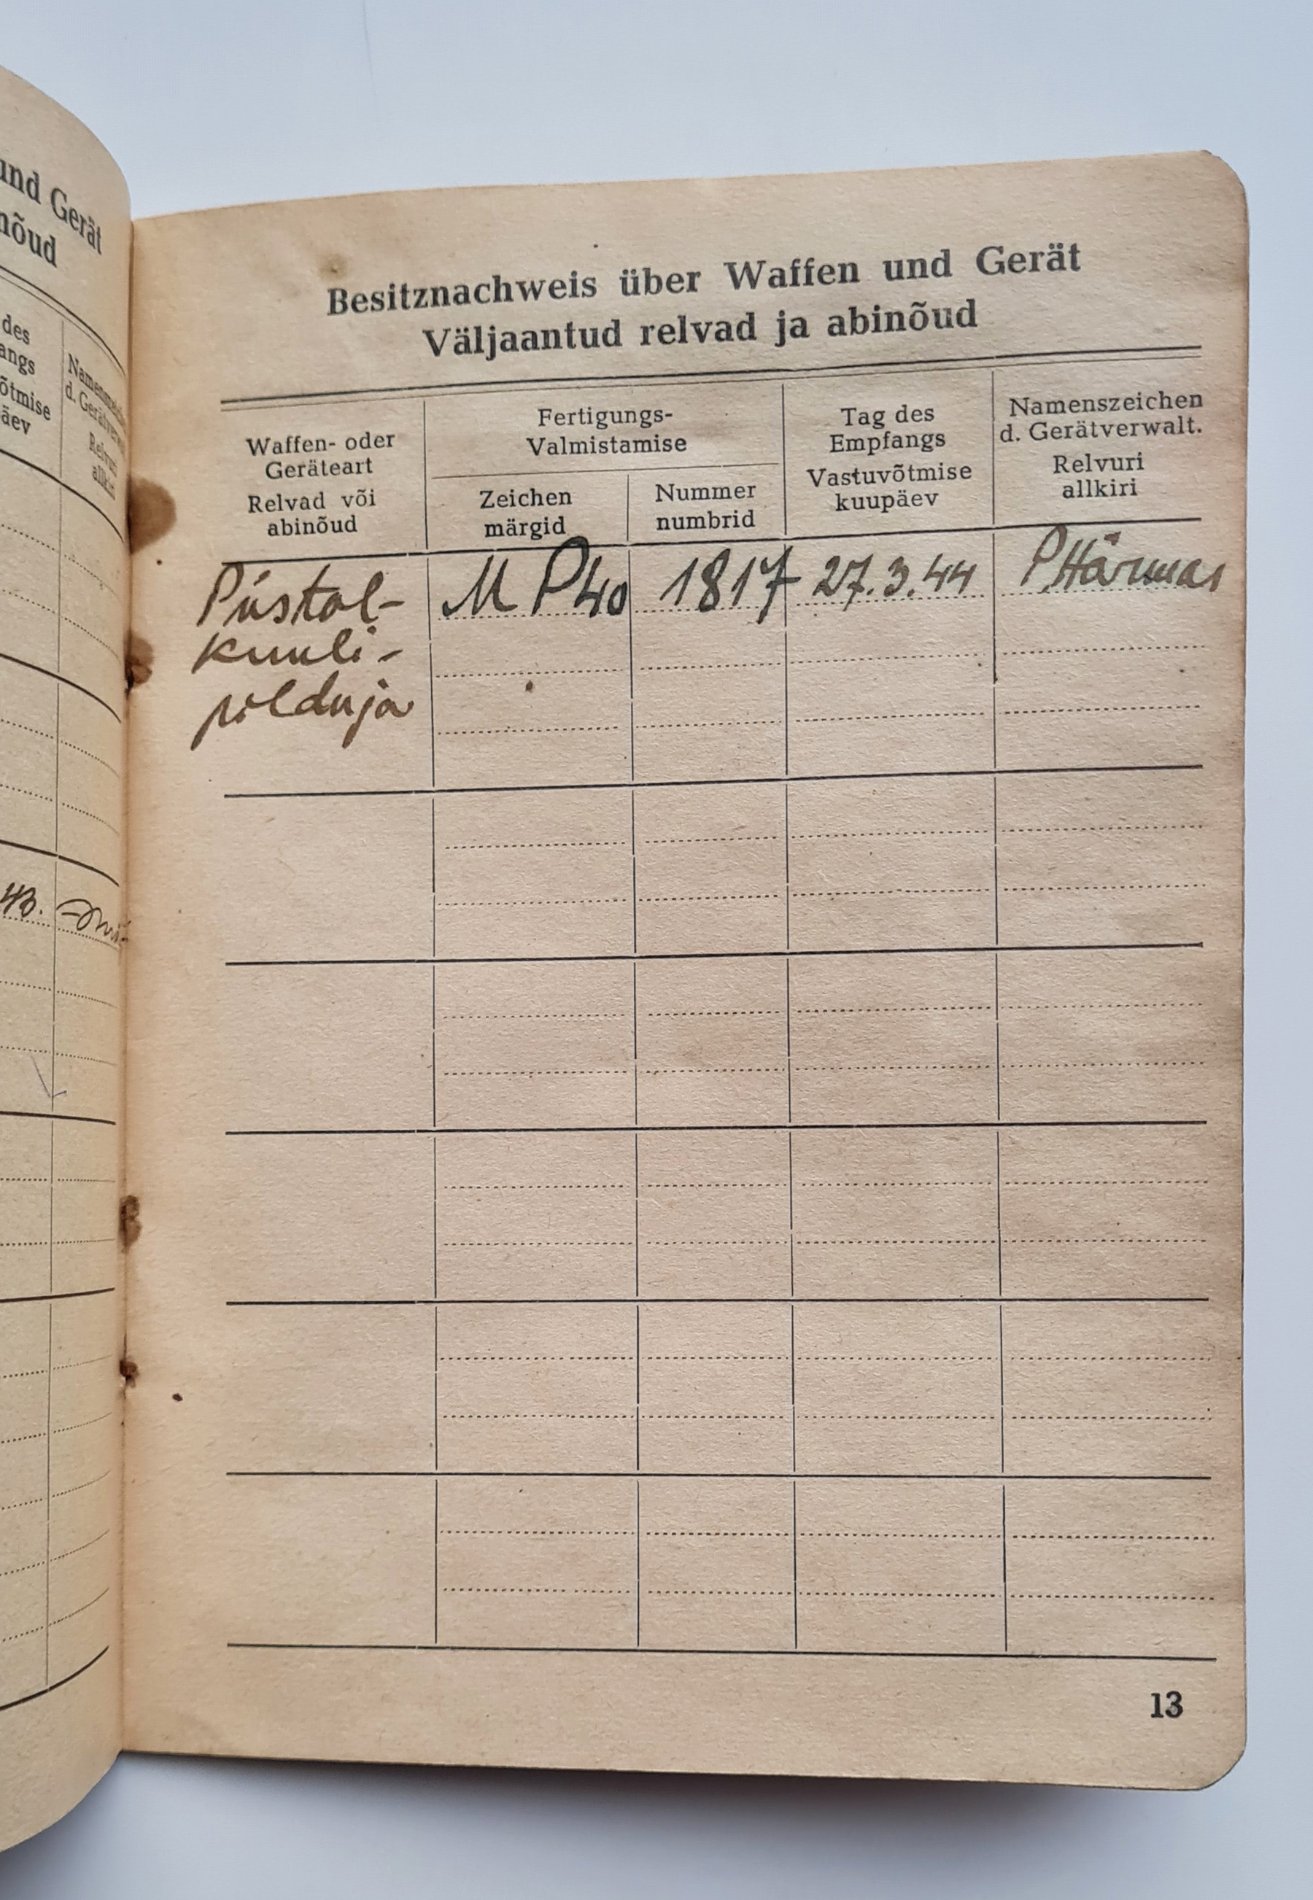 und Gerät
nõud
des
angs
õtmise
äev
Namenszeichen
d. Gerätverwalt.
Relvuri
allkiri
43.
Besitznachweis über Waffen und Gerät
Väljaantud relvad ja abinõud
Waffen- oder
Geräteart
Relvad või
abinõud
Fertigungs-
Valmistamise
Zeichen
märgid
Nummer
numbrid
Tag des
Empfangs
Vastuvõtmise
kuupäev
Namenszeichen
d. Gerätverwalt.
Relvuri
allkiri
Püstol-
kuuli-
pilduja
MP40
1817
27.3.44
PHärmas
13